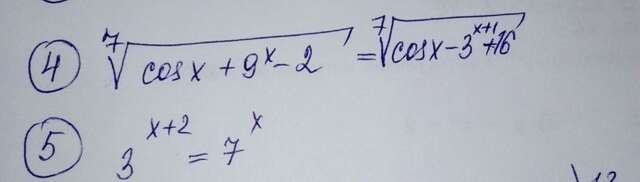 ④ ⁷√(cosx + 9ˣ - 2) = ⁷√(cosx - 3ˣ⁺¹ + 16)
⑤ 3ˣ⁺² = 7ˣ